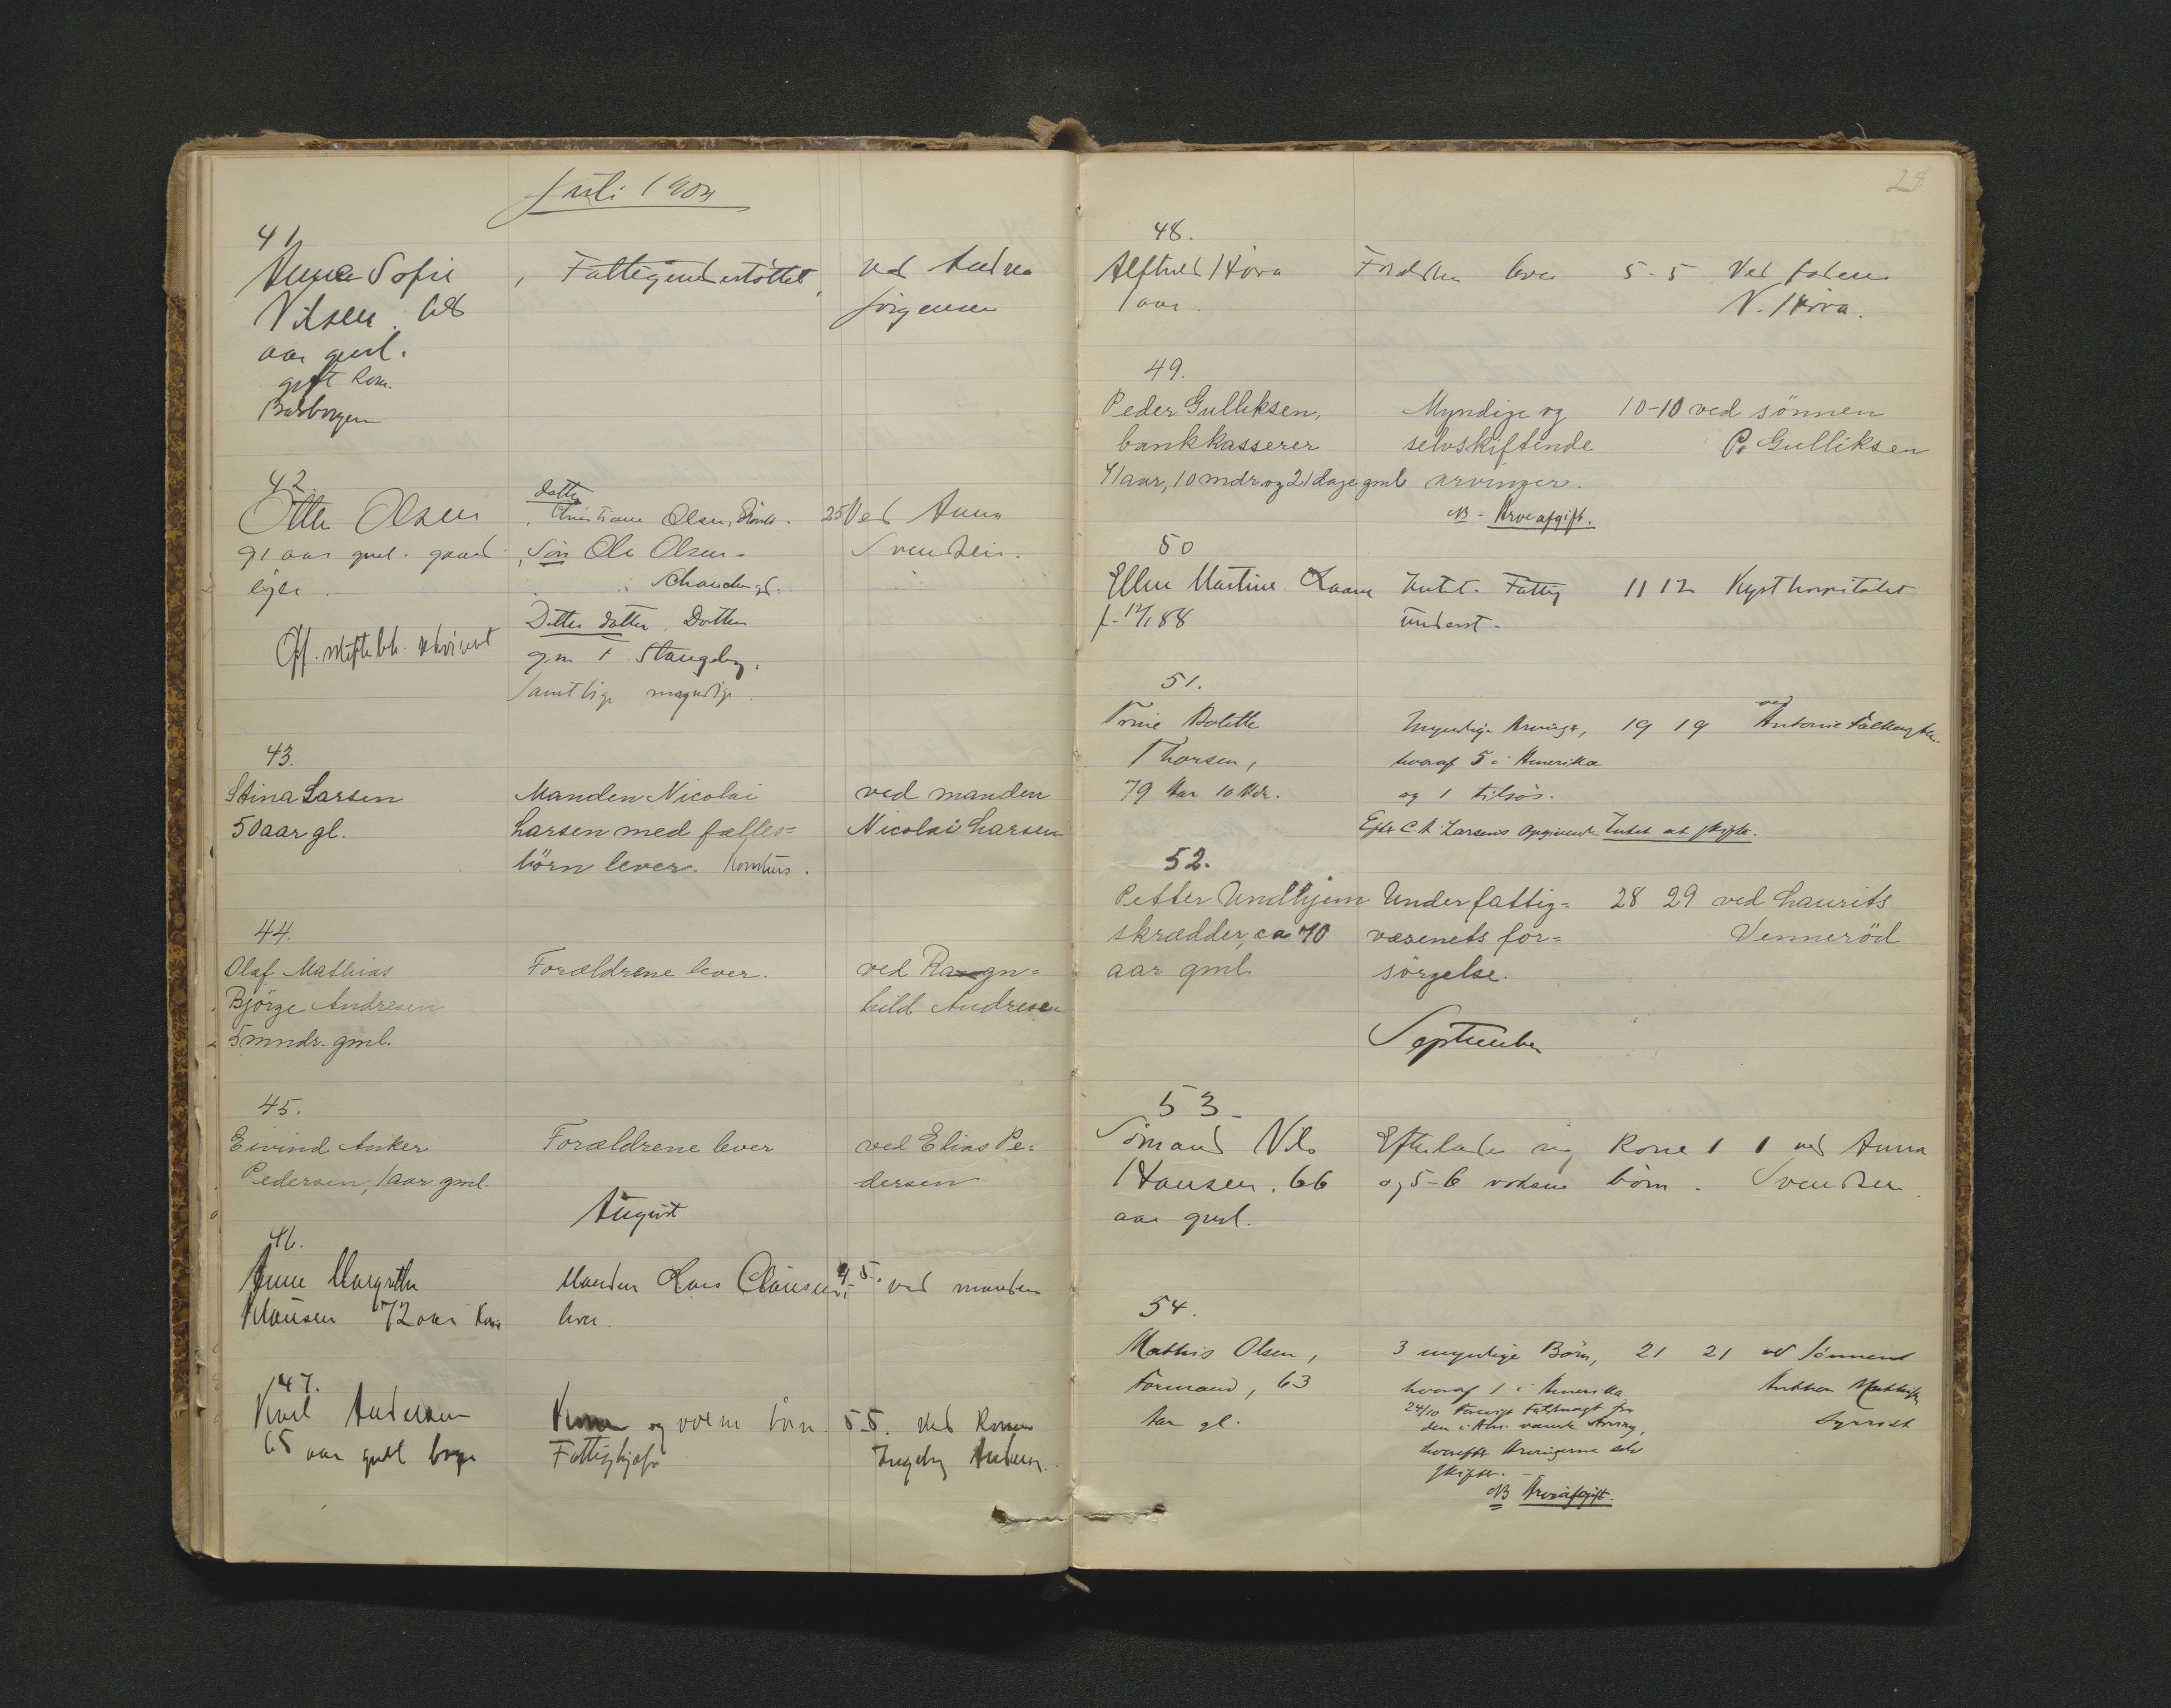 Juli 1904
41
Anna Sofie
Nilsen. 68
aar gml.
gift kone.
, Fattigunderstöttet,
ved Andrea
Jörgensen
42.
Otter Olsen
91 aar gml. gaard
ejer.
Off. skiftebh.
datter
Christiane Olsen,
, Sön Ole Olsen -
Datter datter. Dorthea
g.m. T. Stangeby.
Samtlige myndige.
25 Ved Anna
Svendsen.
43.
Stina Larsen
50 aar gl.
Manden Nicolai
Larsen med fælles=
börn lever. Konkurs.
ved manden
Nicolai Larsen
44.
Olaf Mathias
Björge Andresen
5 mndr. gml.
Forældrene lever.
ved Ragn=
hild Andresen
45.
Eivind Anker
Pedersen, 1 aar gml.
Forældrene lever
ved Elias Pe=
dersen
August
46.
Anne Margrethe
Klausen 72 aar Kone
Manden Lars Clausen
lever.
4. 5. ved manden
47.
Karl Andersen
65 aar gml
Kone og voksne börn.
Fattighjælp
5-5. ved Konen
Ingeborg Andersen.
28
48.
Alfhild Höva
1 aar
Forældre lever
5-5 Ved faderen
N. Höva.
49.
Peder Gulliksen,
bankkasserer
41 aar, 10 mdr. og 21 dage gml.
Myndige og
selvskiftende
arvinger.
NB - Arveafgift.
10-10 ved sönnen
P. Gulliksen
50
Ellen Martine
f. 12/1 88
Intet. Fattig
underst.
11 12 Kysthospitalet
51.
Trine Bolette
Thorsen,
79 Aar 10 Mdr.
Myndige Arvinger,
hvoraf 5 i Amerika
og 1 tilsös.
Efter C. A. Larsens Opgivende Intet at skifte.
19 19 ved
Antonie
52.
Petter Undhjem
skrædder, ca 70
aar gml.
Under fattig=
væsenets for=
sörgelse.
28 29 ved Laurits
Venneröd
September
53
Sömand Nils
Hansen. 66
aar gml.
Efterlader sig Kone
og 5-6 voksne börn.
1 1 ved Anna
Svendsen.
54.
Mathis Olsen,
Formand, 63
Aar gl.
3 myndige Börn,
hvoraf 1 i Amerika
24/10 Forevist Fuldmagt fra
den i Am. værende Arving,
hvorefter Arvingerne selv
skifter. -
NB Arveafgift.
21 21 ved Sönnen
Anthon